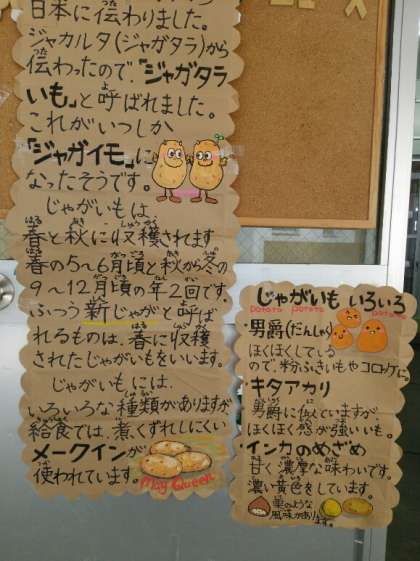 日本に伝わりました。
ジャカルタ(ジャガタラ)から
伝わったので、「ジャガタラ
いも」と呼ばれました。
これがいつしか
「ジャガイモ」に
なったそうです。
じゃがいもは、
春と秋に収穫されます
春の5~6月頃と秋から冬の
9~12月頃の年2回です。
ふつう新じゃがと呼ば
れるものは、春に収穫
されたじゃがいもをいいます。
じゃがいもには、
いろいろな種類がありますが
給食では、煮くずれしにくい
メークインが
使われています。
May Queen
じゃがいも いろいろ
potato potato potato
・男爵(だんしゃく)
ほくほくしている
ので、粉ふきいもやコロッケに
・キタアカリ
男爵に似ていますが、
ほくほく感が強いいも。
・インカのめざめ
甘く濃厚な味わいです。
濃い黄色をしています。
栗のような
風味があります。